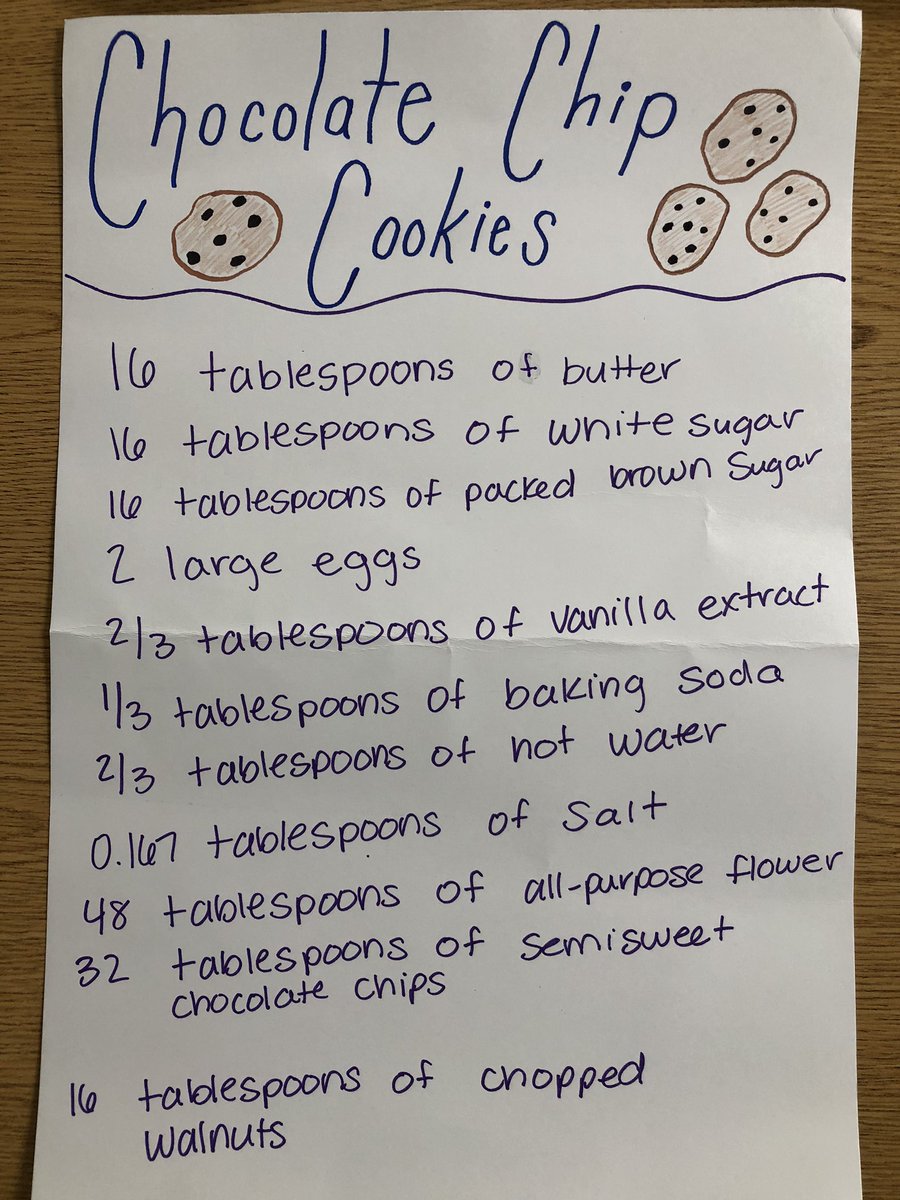 Chocolate Chip
Cookies
16 tablespoons of butter
16 tablespoons of white sugar
16 tablespoons of packed brown Sugar
2 large eggs
2/3 tablespoons of vanilla extract
1/3 tablespoons of baking soda
2/3 tablespoons of hot water
0.167 tablespoons of Salt
48 tablespoons of all-purpose flower
32 tablespoons of semisweet
chocolate chips
16 tablespoons of chopped
walnuts